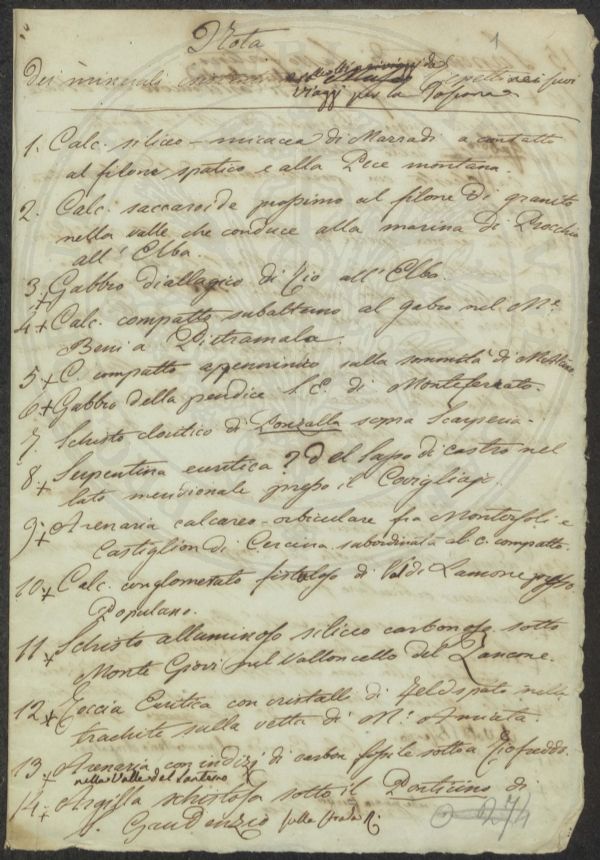 Nota
1
Dei minerali
Repetti nei suoi
viaggi per la Toscana
1. Calc. siliceo-micacea di Marradi a contatto
al filone spatico e alla Pece montana.
2. Calc. saccaroide prossimo al filone di granito
nella valle che conduce alla marina di Procchio
all'Elba.
3. + Gabbro diallagico di Rio all'Elba
4 + Calc. compatto subalterno al gabro nel Me
Beni a Pietramala.
5 + C. compatto appenninico sulla sommità di
6 + Gabbro della pendice S. E. di Monteferrato.
7. Schisto cloritico di Ronzalla sopra Scarperia.
8. + Serpentina euritica? del Sasso di Castro nel
lato meridionale presso il Covigliajo.
9. + Arenaria calcareo-orbiculare fra Monterfoli e
Castiglion di Cercina subordinata al c. compatto.
10. + Calc. conglomerato fistoloso di Val di Lamone presso
Popolano.
11. + Schisto alluminoso siliceo carbonoso sotto
Monte Giovi nel Valloncello del
12. + Roccia Euritica con cristalli di feldspato nella
trachite sulla vetta di M. Amiata.
13. + Arenaria con indizj di carbon fossile sotto a Riofreddo
nella Valle del Santerno
14. + Argilla schistosa sotto il Ponticino di
Gaudenzio sulla strada R.
274